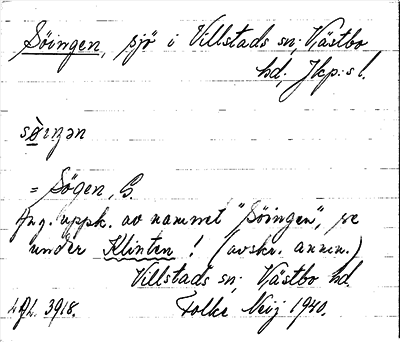 Söingen, sjö i Villstads sn; Västbo
hd; Jkp:s l.
sø̀iŋən
= Sögen, G.
Ang. uppk. av namnet "Söingen", se
under Klinten! (avskr. annen.)
Villstads sn; Västbo hd.
3918. Folke Neij 1940.